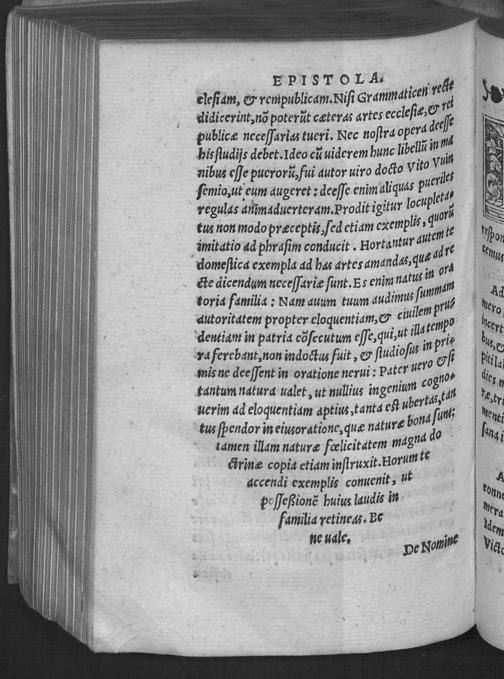 EPISTOLA.
clesiam, & rempublicam. Nisi Grammaticen recte
didicerint, nõ poterũt cæteras artes ecclesiæ, & rei
publicæ necessarias tueri. Nec nostra opera deesse
his studijs debet. Ideo cũ uiderem hunc libellũ in ma
nibus esse puerorũ, fui autor uiro docto Vito Vuin
semio, ut eum augeret: deesse enim aliquas pueriles
regulas animaduerteram. Prodit igitur locupleta-
tus non modo præceptis, sed etiam exemplis, quorũ
imitatio ad phrasim conducit. Hortantur autem te
domestica exempla ad has artes amandas, quæ ad re
cte dicendum necessariæ sunt. Es enim natus in ora
toria familia: Nam auum tuum audimus summam
autoritatem propter eloquentiam, & ciuilem prudentiam
dentiam in patria cõsecutum esse, qui, ut illa tempo
ra ferebant, non indoctus fuit, & studiosus in pri-
mis ne deessent in oratione nerui: Pater uero & si
tantum natura ualet, ut nullius ingenium cogno-
uerim ad eloquentiam aptius, tanta est ubertas, tan
tus splendor in eius oratione, quæ naturæ bona sunt:
tamen illam naturæ fœlicitatem magna do
ctrinæ copia etiam instruxit. Horum te
accendi exemplis conuenit, ut
possessionẽ huius laudis in
familia retineas. Be
ne uale.
De Nomine